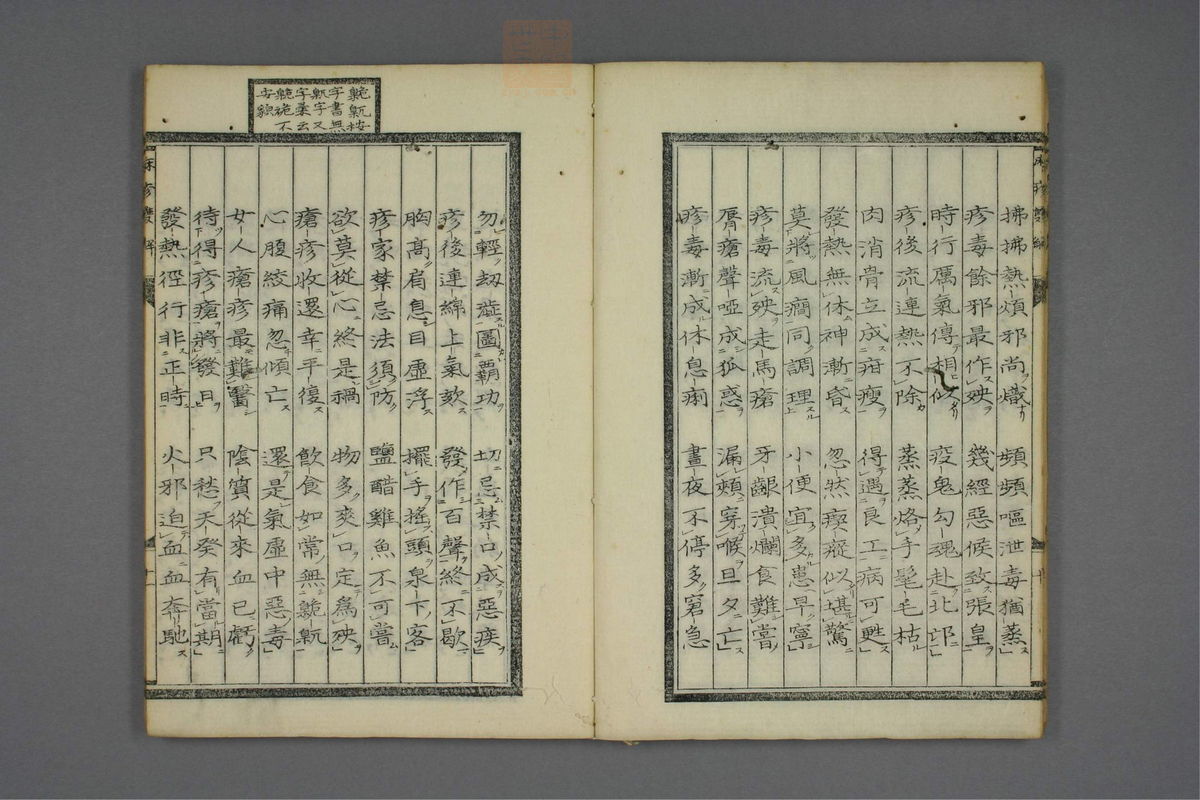 拂拂熱煩邪尚熾 頻頻嘔泄毒猶蒸
疹毒餘邪最作殃 幾經惡候致張皇
時行厲氣傳相似 疫鬼勾魂赴北邙
疹後流連熱不除 蒸蒸烙手髦毛枯
肉消骨立成疳瘦 得遇良工病可甦
發熱無休神漸昏 忽然瘈瘲似堪驚
莫將風癇同調理 小便宜多患早寧
疹毒流殃走馬瘡 牙齦潰爛食難嘗
脣瘡聲啞成狐惑 漏頰穿喉旦夕亡
疹毒漸成休息痢 晝夜不停多窘急
勿輕劫澁圖覇功 切忌禁口成惡疾
疹後連綿上氣欬 發作百聲終不歇
胸高肩息目虛浮 擺手搖頭泉下客
疹家禁忌法須防 鹽醋雞魚不可嘗
欲莫從心終是禍 物多爽口定爲殃
瘡疹收還幸平復 飮食如常無鷍䡾
心腹絞痛忽傾亡 還是氣虛中惡毒
女人瘡疹最難醫 陰質從來血已虧
待得疹瘡將發日 只愁天癸有當期
發熱徑行非正時 火邪迫血血奔馳